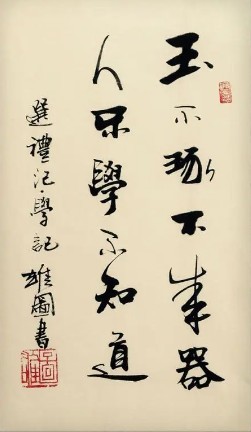 玉不琢不成器
人不學不知道
選禮記學記 雄圖書